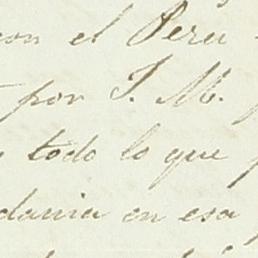 con el Peru
por J. M.
todo lo que
en esa